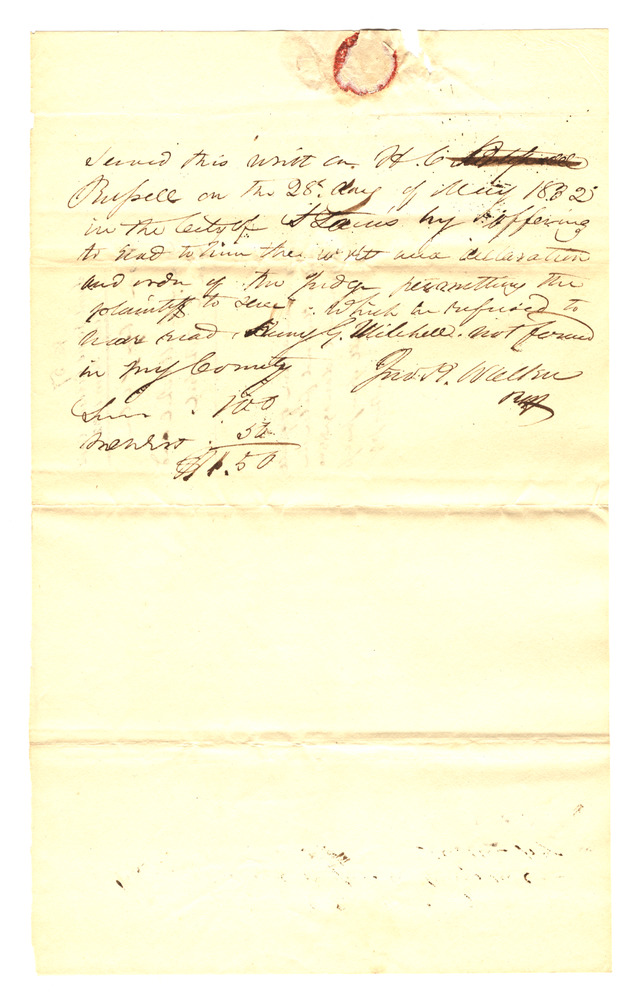 Served this writt on H. C.
Russell on the 28th day of May 1832
in the City of St Louis by offering
to read to him the writt and declaration
and order of the Judge permitting the
plaintiff to sue. Which he refused to
hear read. Henry G. Mitchell. not found
in my County Jno. K. Walker
Shff
Serv . 100
non est . 50
$1.50